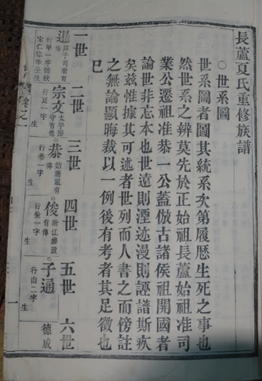 長蘆夏氏重修族譜
○世系圖
世系圖者圖其統系次第履歷生死之事也
然世系之辨莫先於正始祖長蘆始祖准司
業公遷祖准恭一公蓋倣古諸侯祖開國者
論世非忘本也世遠則湮迹漫則誣譜斯疚
矣兹惟據其可述者世列而人書之而傍註
之無論顯晦裁以一例後有考者其足徵也
已
一世
二世
三世
四世
五世
六世
宗文
恭
俊
子通
德威
行恭一字
行山二字
生
生
生
生
生